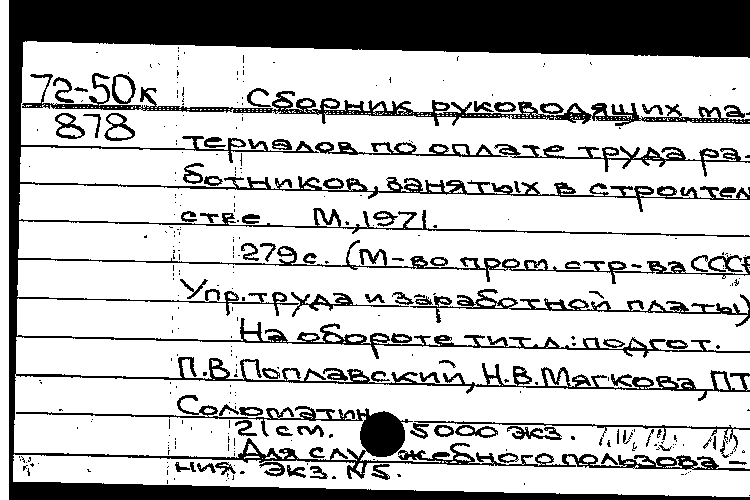 72-50к
878
Сборник руководящих ма-
териалов по оплате труда ра-
ботников, занятых в строител
стве. М., 1971.
279 с. (М-во пром. стр-ва СССР
Упр. труда и заработной платы)
На обороте тит. л.: подгот.
П.В. Поплавский, Н.В. Мягкова, П.Т
Соломатин
21 см. 5000 экз.
Для служебного пользова-
ния. Экз. N5.